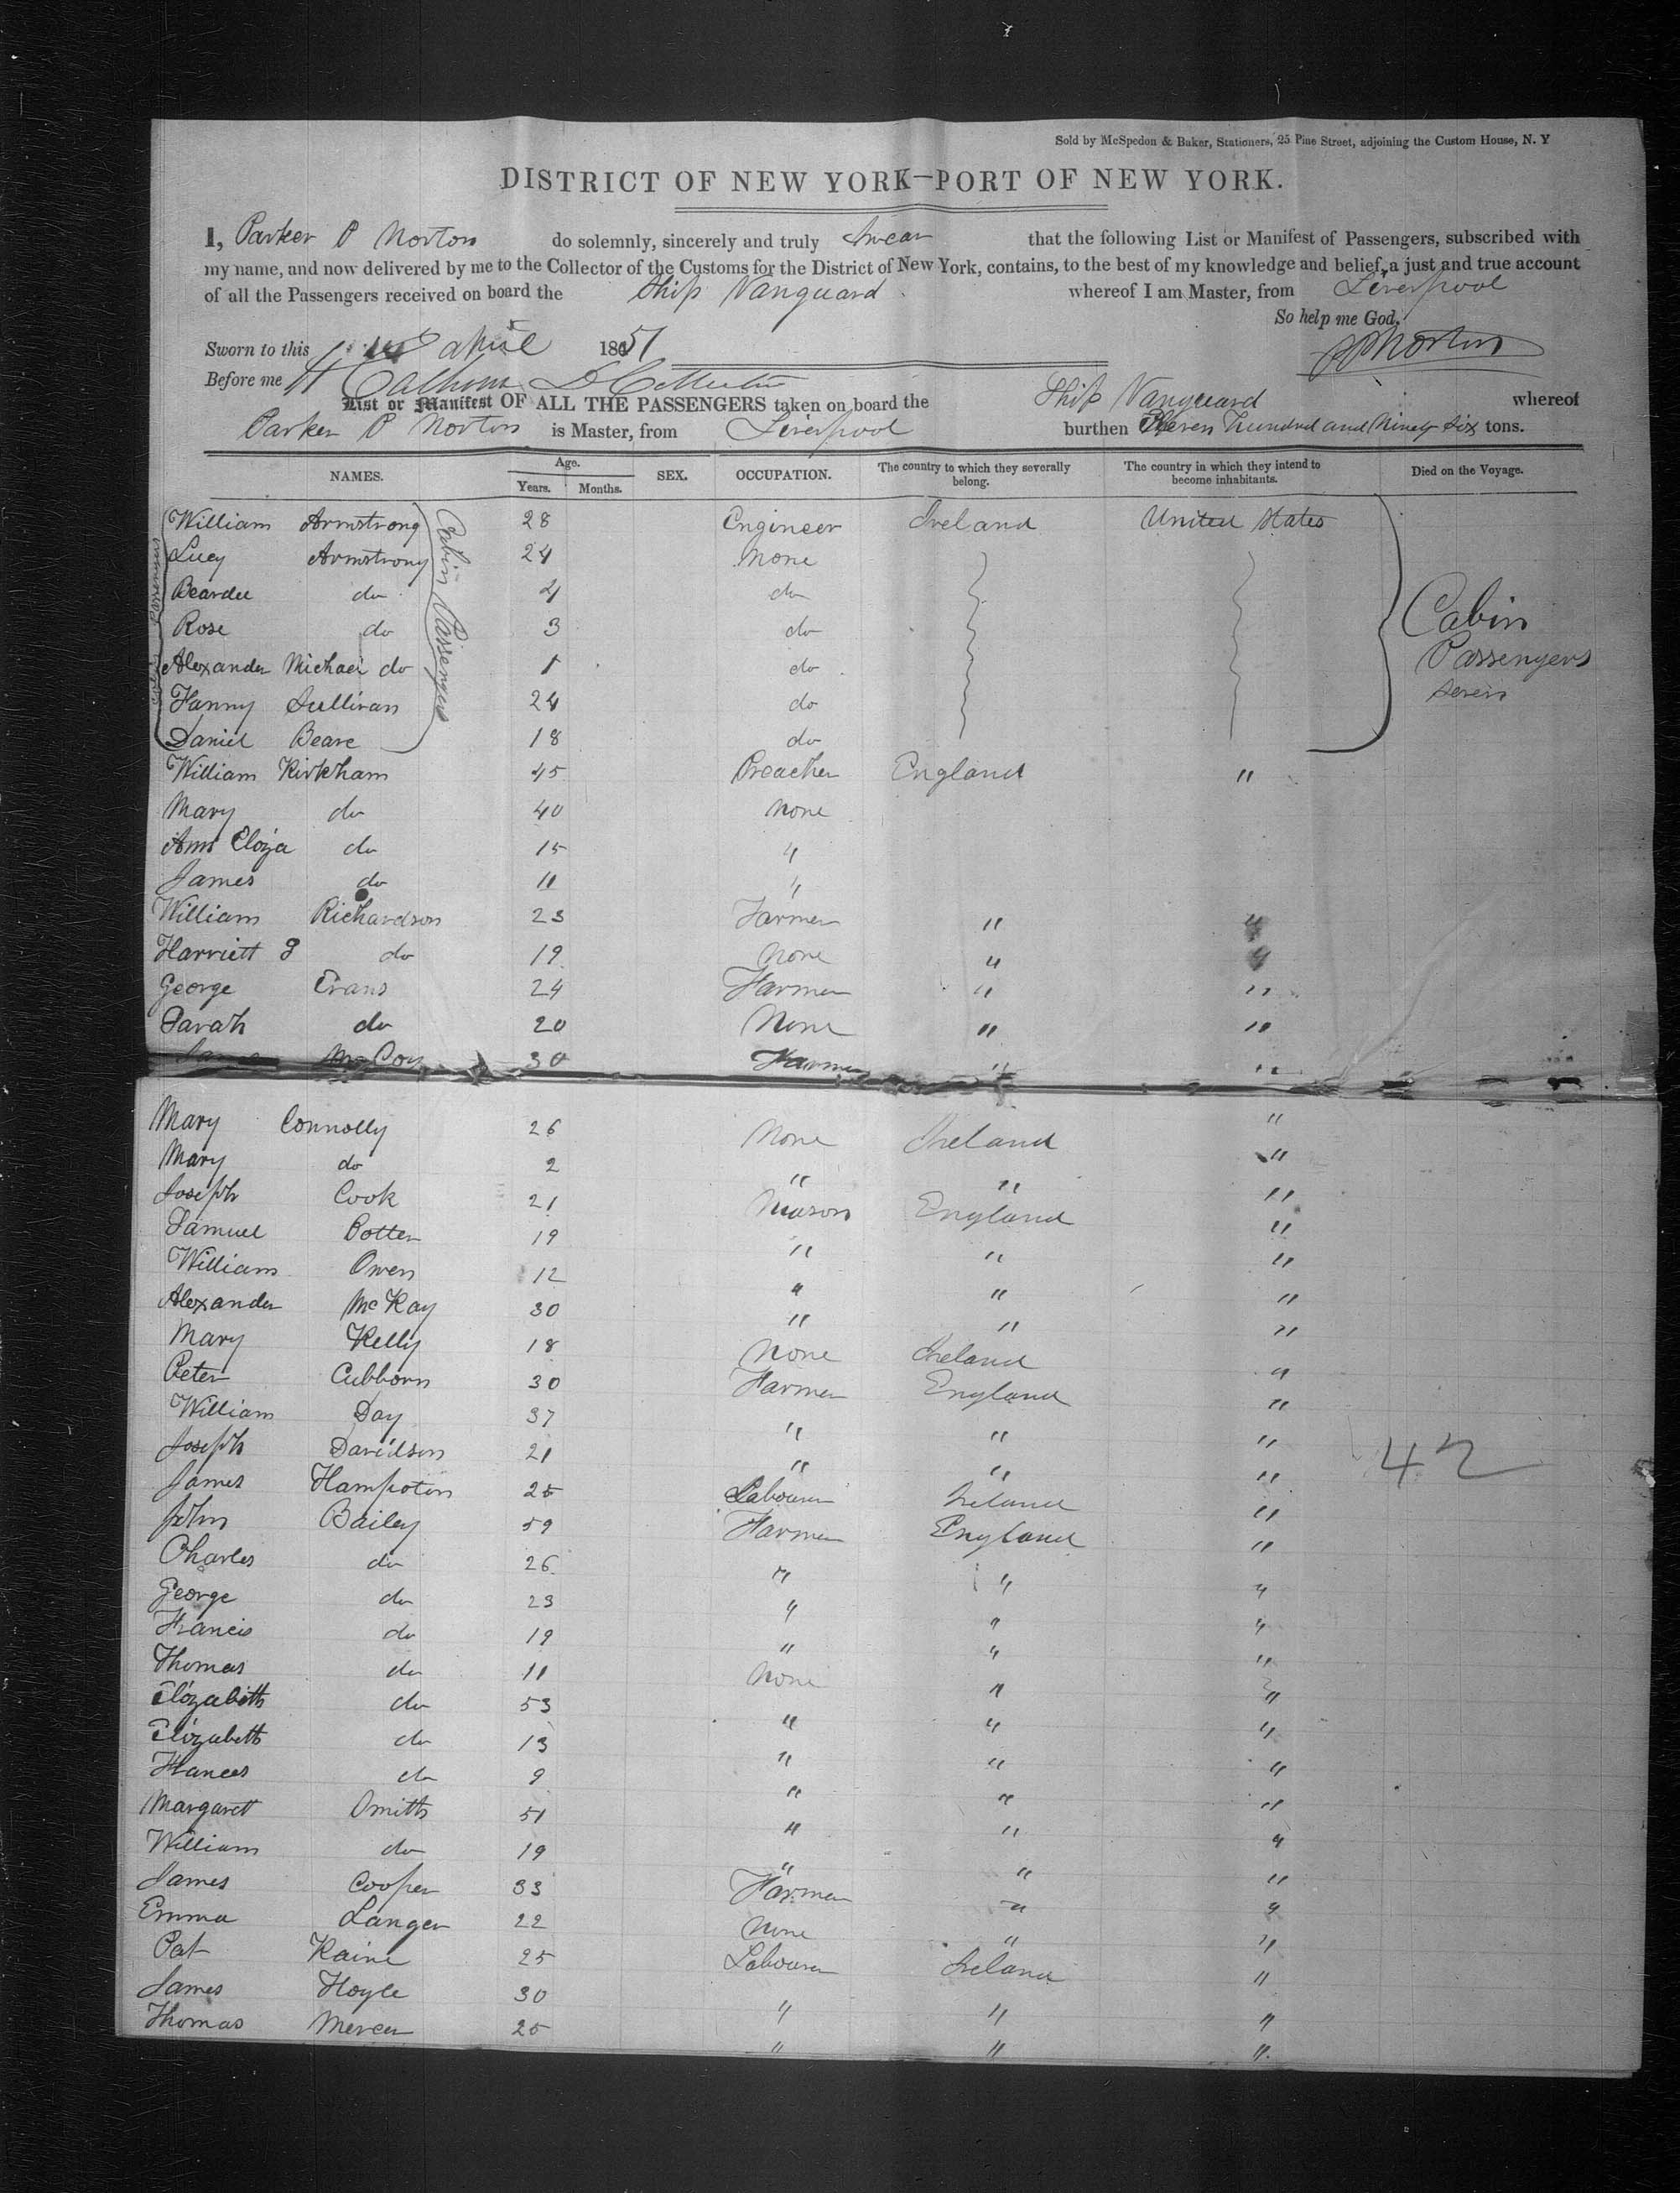 Sold by McSpedon & Baker, Stationers, 25 Pine Street, adjoining the Custom House, N. Y
DISTRICT OF NEW YORK—PORT OF NEW YORK.
I, Parker P Norton do solemnly, sincerely and truly Swear that the following List or Manifest of Passengers, subscribed with
my name, and now delivered by me to the Collector of the Customs for the District of New York, contains, to the best of my knowledge and belief, a just and true account
of all the Passengers received on board the Ship Vanguard whereof I am Master, from Liverpool
So help me God.
Sworn to this April 1851
P P Norton
Before me
List or Manifest OF ALL THE PASSENGERS taken on board the Ship Vanguard whereof
Parker P Norton is Master, from Liverpool burthen Eleven Hundred and Ninety Six tons.
NAMES. Age. Years. Months. SEX. OCCUPATION. The country to which they severally belong. The country in which they intend to become inhabitants. Died on the Voyage.
Cabin Passengers
Cabin Passengers Seven
William Armstrong 28 Engineer Ireland United States
Lucy Armstrong 24 None
Beardee do 4 do
Rose do 3 do
Alexander Michael do 1 do
Fanny Sullivan 24 do
Daniel Beare 18 do
William Kirkham 45 Preacher England "
Mary do 40 None
Ann Eliza do 15 "
James do 11 "
William Richardson 23 Farmer " "
Harriett J do 19 None " "
George Evans 24 Farmer " "
Sarah do 20 None " "
James McCoy 30 Farmer " "
Mary Connolly 26 None Ireland "
Mary do 2 " " "
Joseph Cook 21 Mason England "
Samuel Potter 19 " " "
William Owen 12 " " "
Alexander McKay 30 " " "
Mary Kelly 18 None Ireland "
Peter Cubborn 30 Farmer England "
William Day 37 " " "
Joseph Davidson 21 " " "
42
James Hampton 25 Labourer Ireland "
John Bailey 59 Farmer England "
Charles do 26 " " "
George do 23 " " "
Francis do 19 " " "
Thomas do 11 None " "
Elizabeth do 53 " " "
Elizabeth do 13 " " "
Frances do 9 " " "
Margaret Smith 51 " " "
William do 19 " " "
James Cooper 33 Farmer " "
Emma Langer 22 None " "
Pat Kaine 25 Labourer Ireland "
James Hoyle 30 " " "
Thomas Mercer 25 " " "